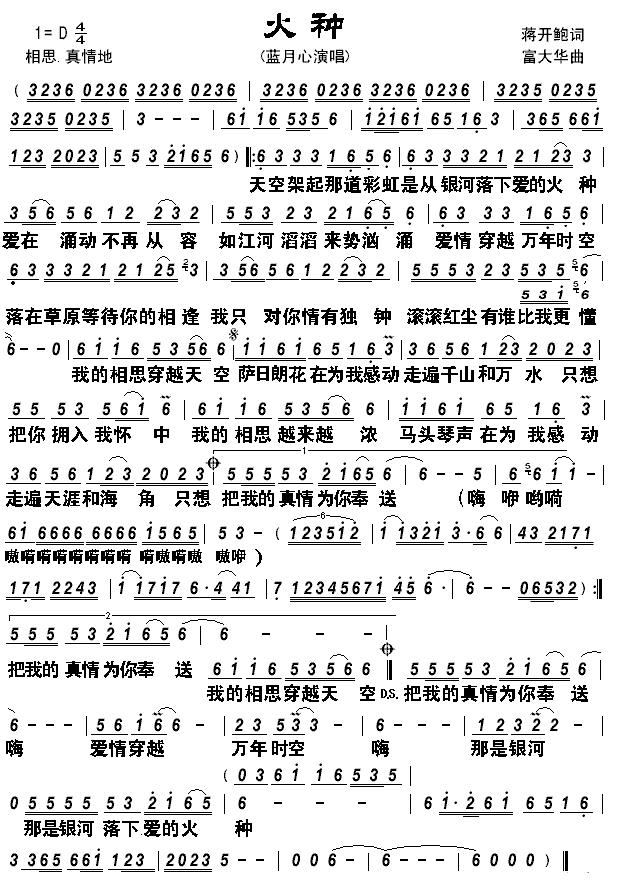 火 种
1= D 4/4
蒋开鲍词
相思.真情地
(蓝月心演唱)
富大华曲
( 3236 0236 3236 0236 | 3236 0236 3236 0236 | 3235 0235 3235 0235
3235 0235 3235 0235 | 3 - - - | 61 16 535 6 | 1 2161 65 16 3 | 365 661
123 2023 | 5 5 3 2165 6 ) |: 6 3 3 3 1 6 5 6 | 6 3 3 321 21 23 3 |
天空架起那道彩虹是从 银河落下爱的火 种
3 56 56 12 232 | 553 23 216 6 | 63 33 1656 |
爱在 涌动 不再 从 容 如江河 滔滔 来势汹 涌 爱情 穿越 万年时空
6 3 3 321 21 25 3 | 3 565 61 2232 | 5553 23 535 6
5 3 1 6
落在草原等待你的相 逢 我只 对你情有独 钟 滚滚红尘有谁比我更 懂
6 - - 0 | 61 16 5356 6 | 1161 65 16 3 | 3656 123 2023
我的相思穿越天 空 萨日朗花在为我感动 走遍千山和万 水 只想
55 53 561 6 | 61 16 5356 6 | 1161 65 16 3 |
把你 拥入 我怀 中 我的 相思 越来越 浓 马头 琴声 在为 我感 动
36 56 123 2023 | 5553 2165 6 | 6 - - 5 | 6 6 1 1 - |
1
走遍 天涯和海 角 只想 把我的 真情为你奉 送 (嗨 咿 哟嗬
61 6666 6666 1565 | 53 - ( 123512 | 1 1321 3·6 6 | 43 2171
6
嗷嗬嗬嗬嗬嗬嗬嗬 嗬嗷嗬嗷 嗷咿 )
171 2243 | 1 1717 6·4 41 | 7 1234567 1 45 6· | 6 - - 06532 ) :|
2
555 53 2165 6 | 6 - - - |
把我的 真情 为你奉 送 61 16 5356 6 || 5553 2165 6 |
我的相思穿越天 空 D.S. 把我的真情为你奉 送
6 - - - | 56 16 6 - | 23 55 3 - | 6 - - - | 123 2 2 - |
嗨 爱情穿越 万年时空 嗨 那是银河
( 0361 16535 |
0 555 5 53 2165 | 6 - - - | 61· 261 65 16 |
那是银河 落下.爱的火 种
3 365 661 123 | 2023 5 - | (006 56 1 2 | 6 - - - | 6 - - 0 ) ||